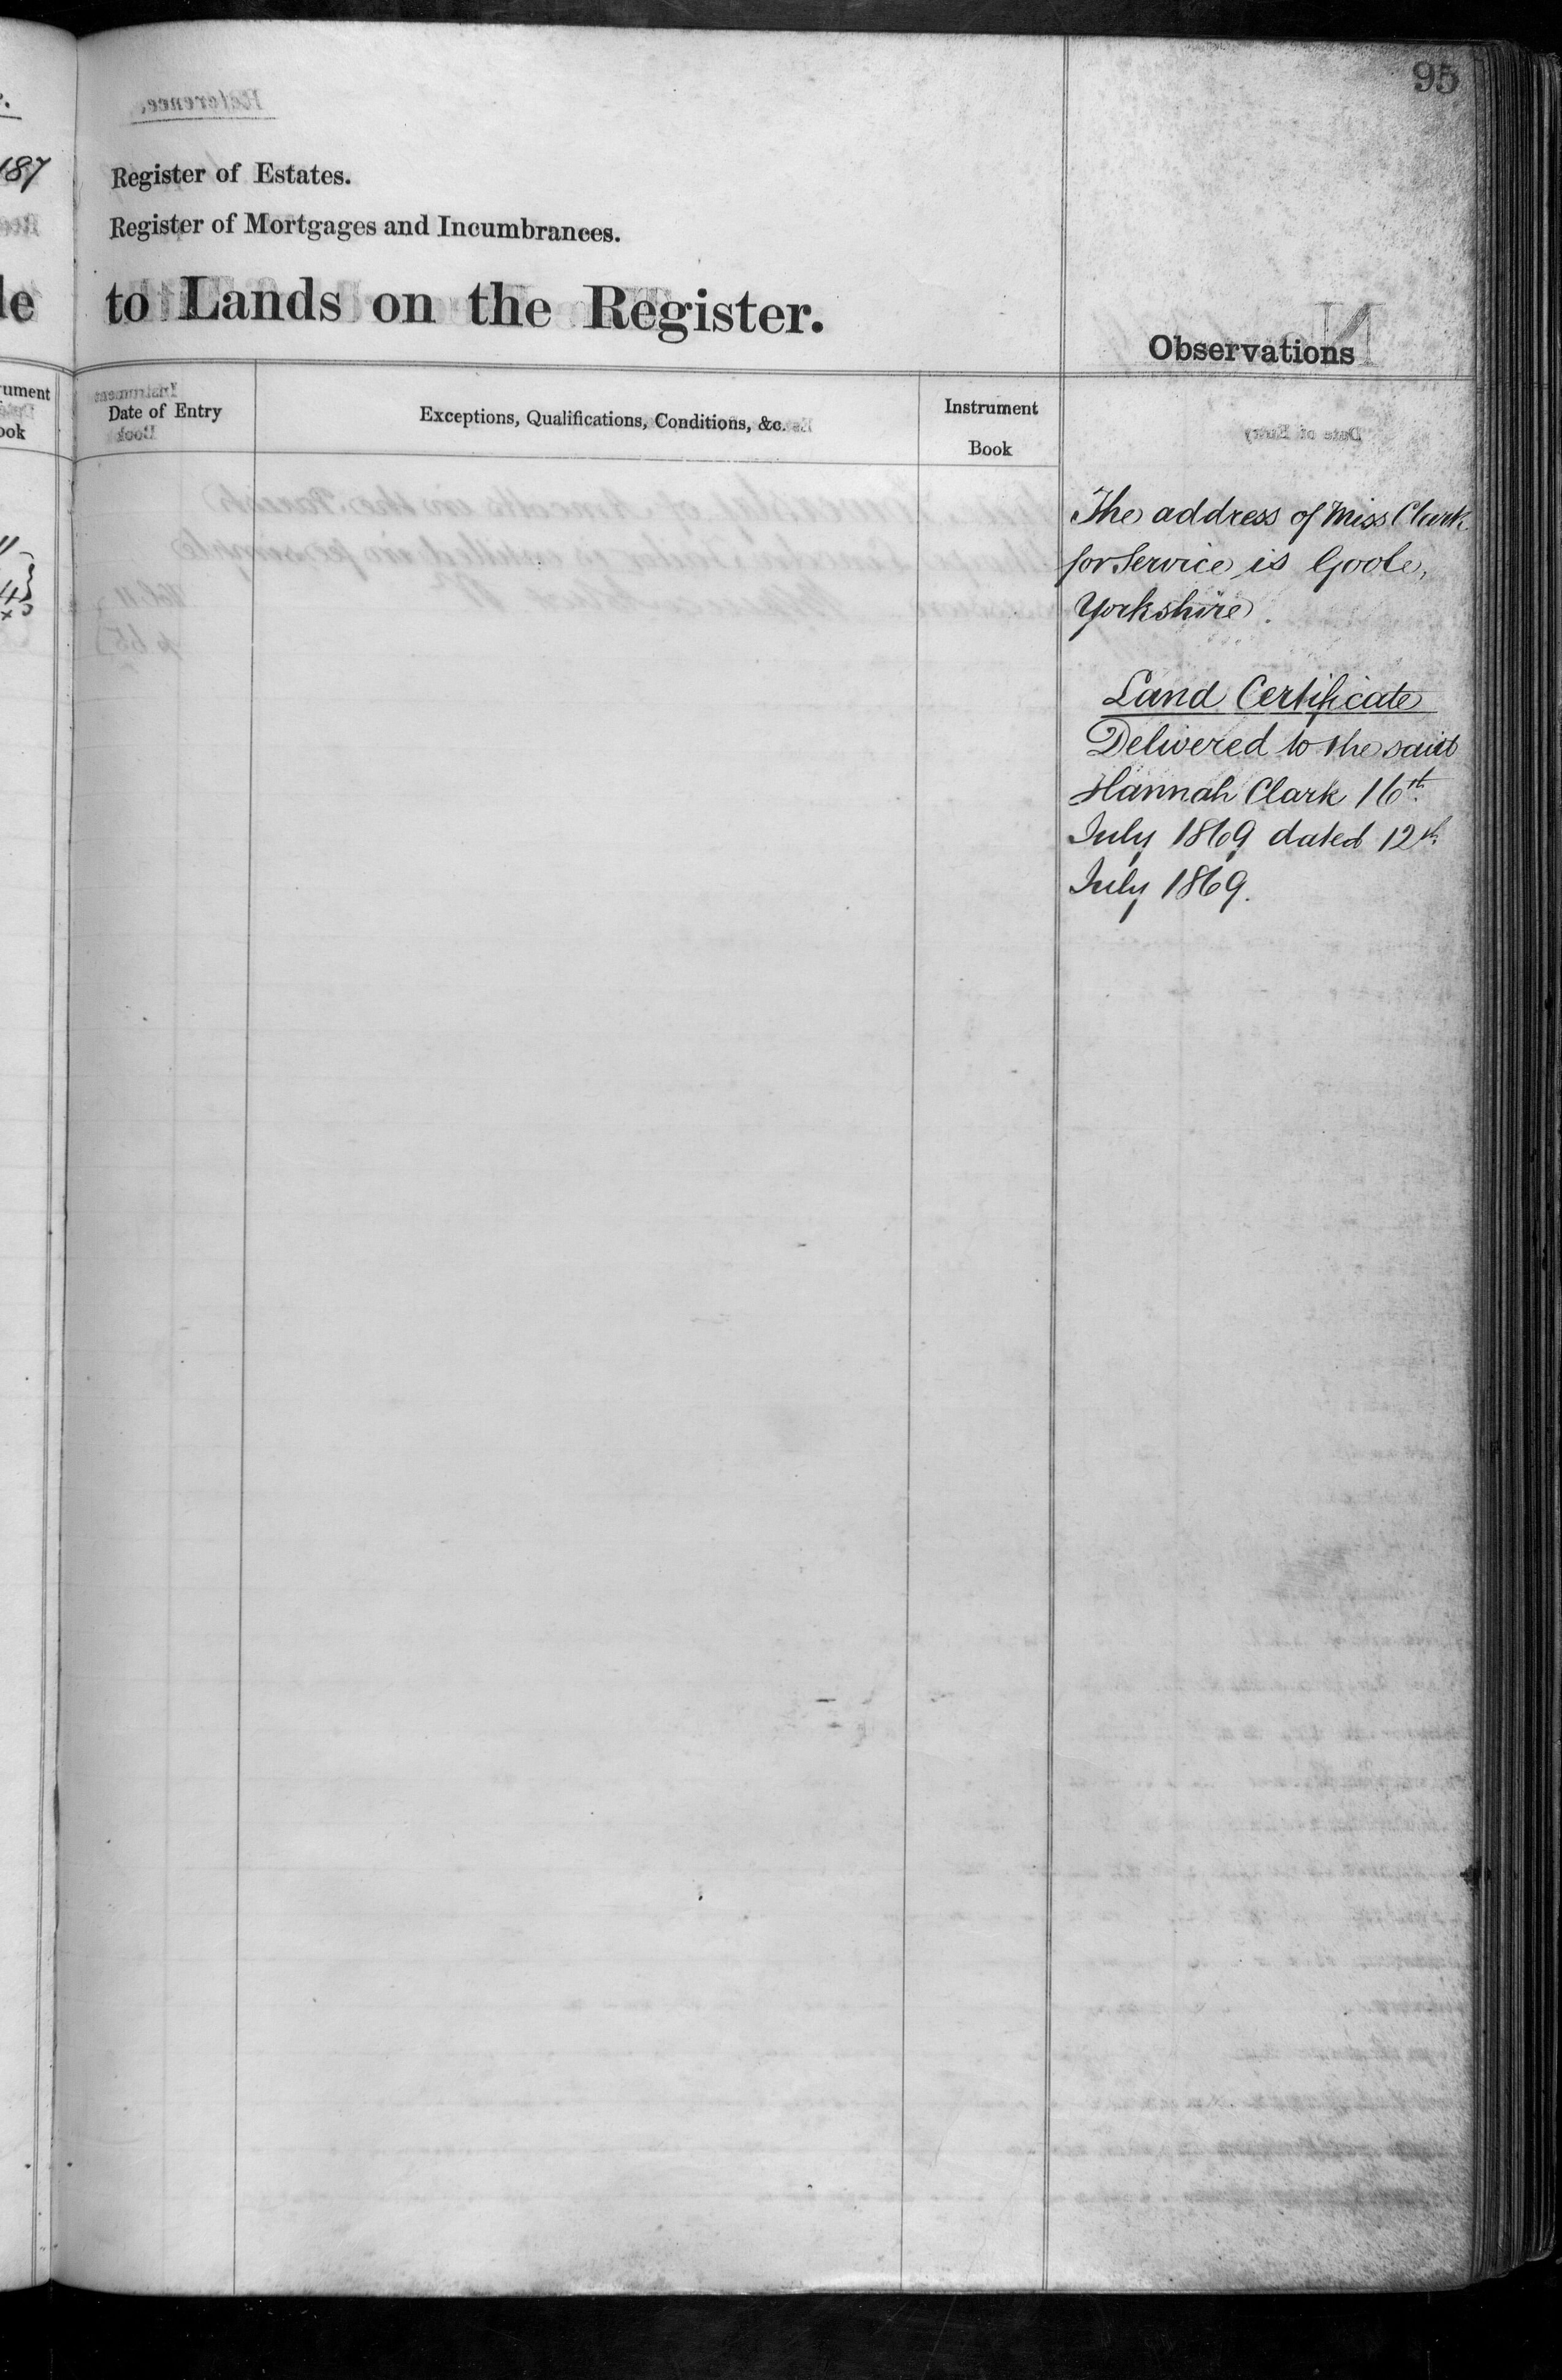 95
187
Register of Estates.
Register of Mortgages and Incumbrances.
le to Lands on the Register.
Observations
rument
ook
Date of Entry
Exceptions, Qualifications, Conditions, &c.
Instrument
Book
The address of Miss Clark
for Service is Goole,
Yorkshire.
Land Certificate
Delivered to the said
Hannah Clark 16th
July 1869 dated 12th
July 1869.